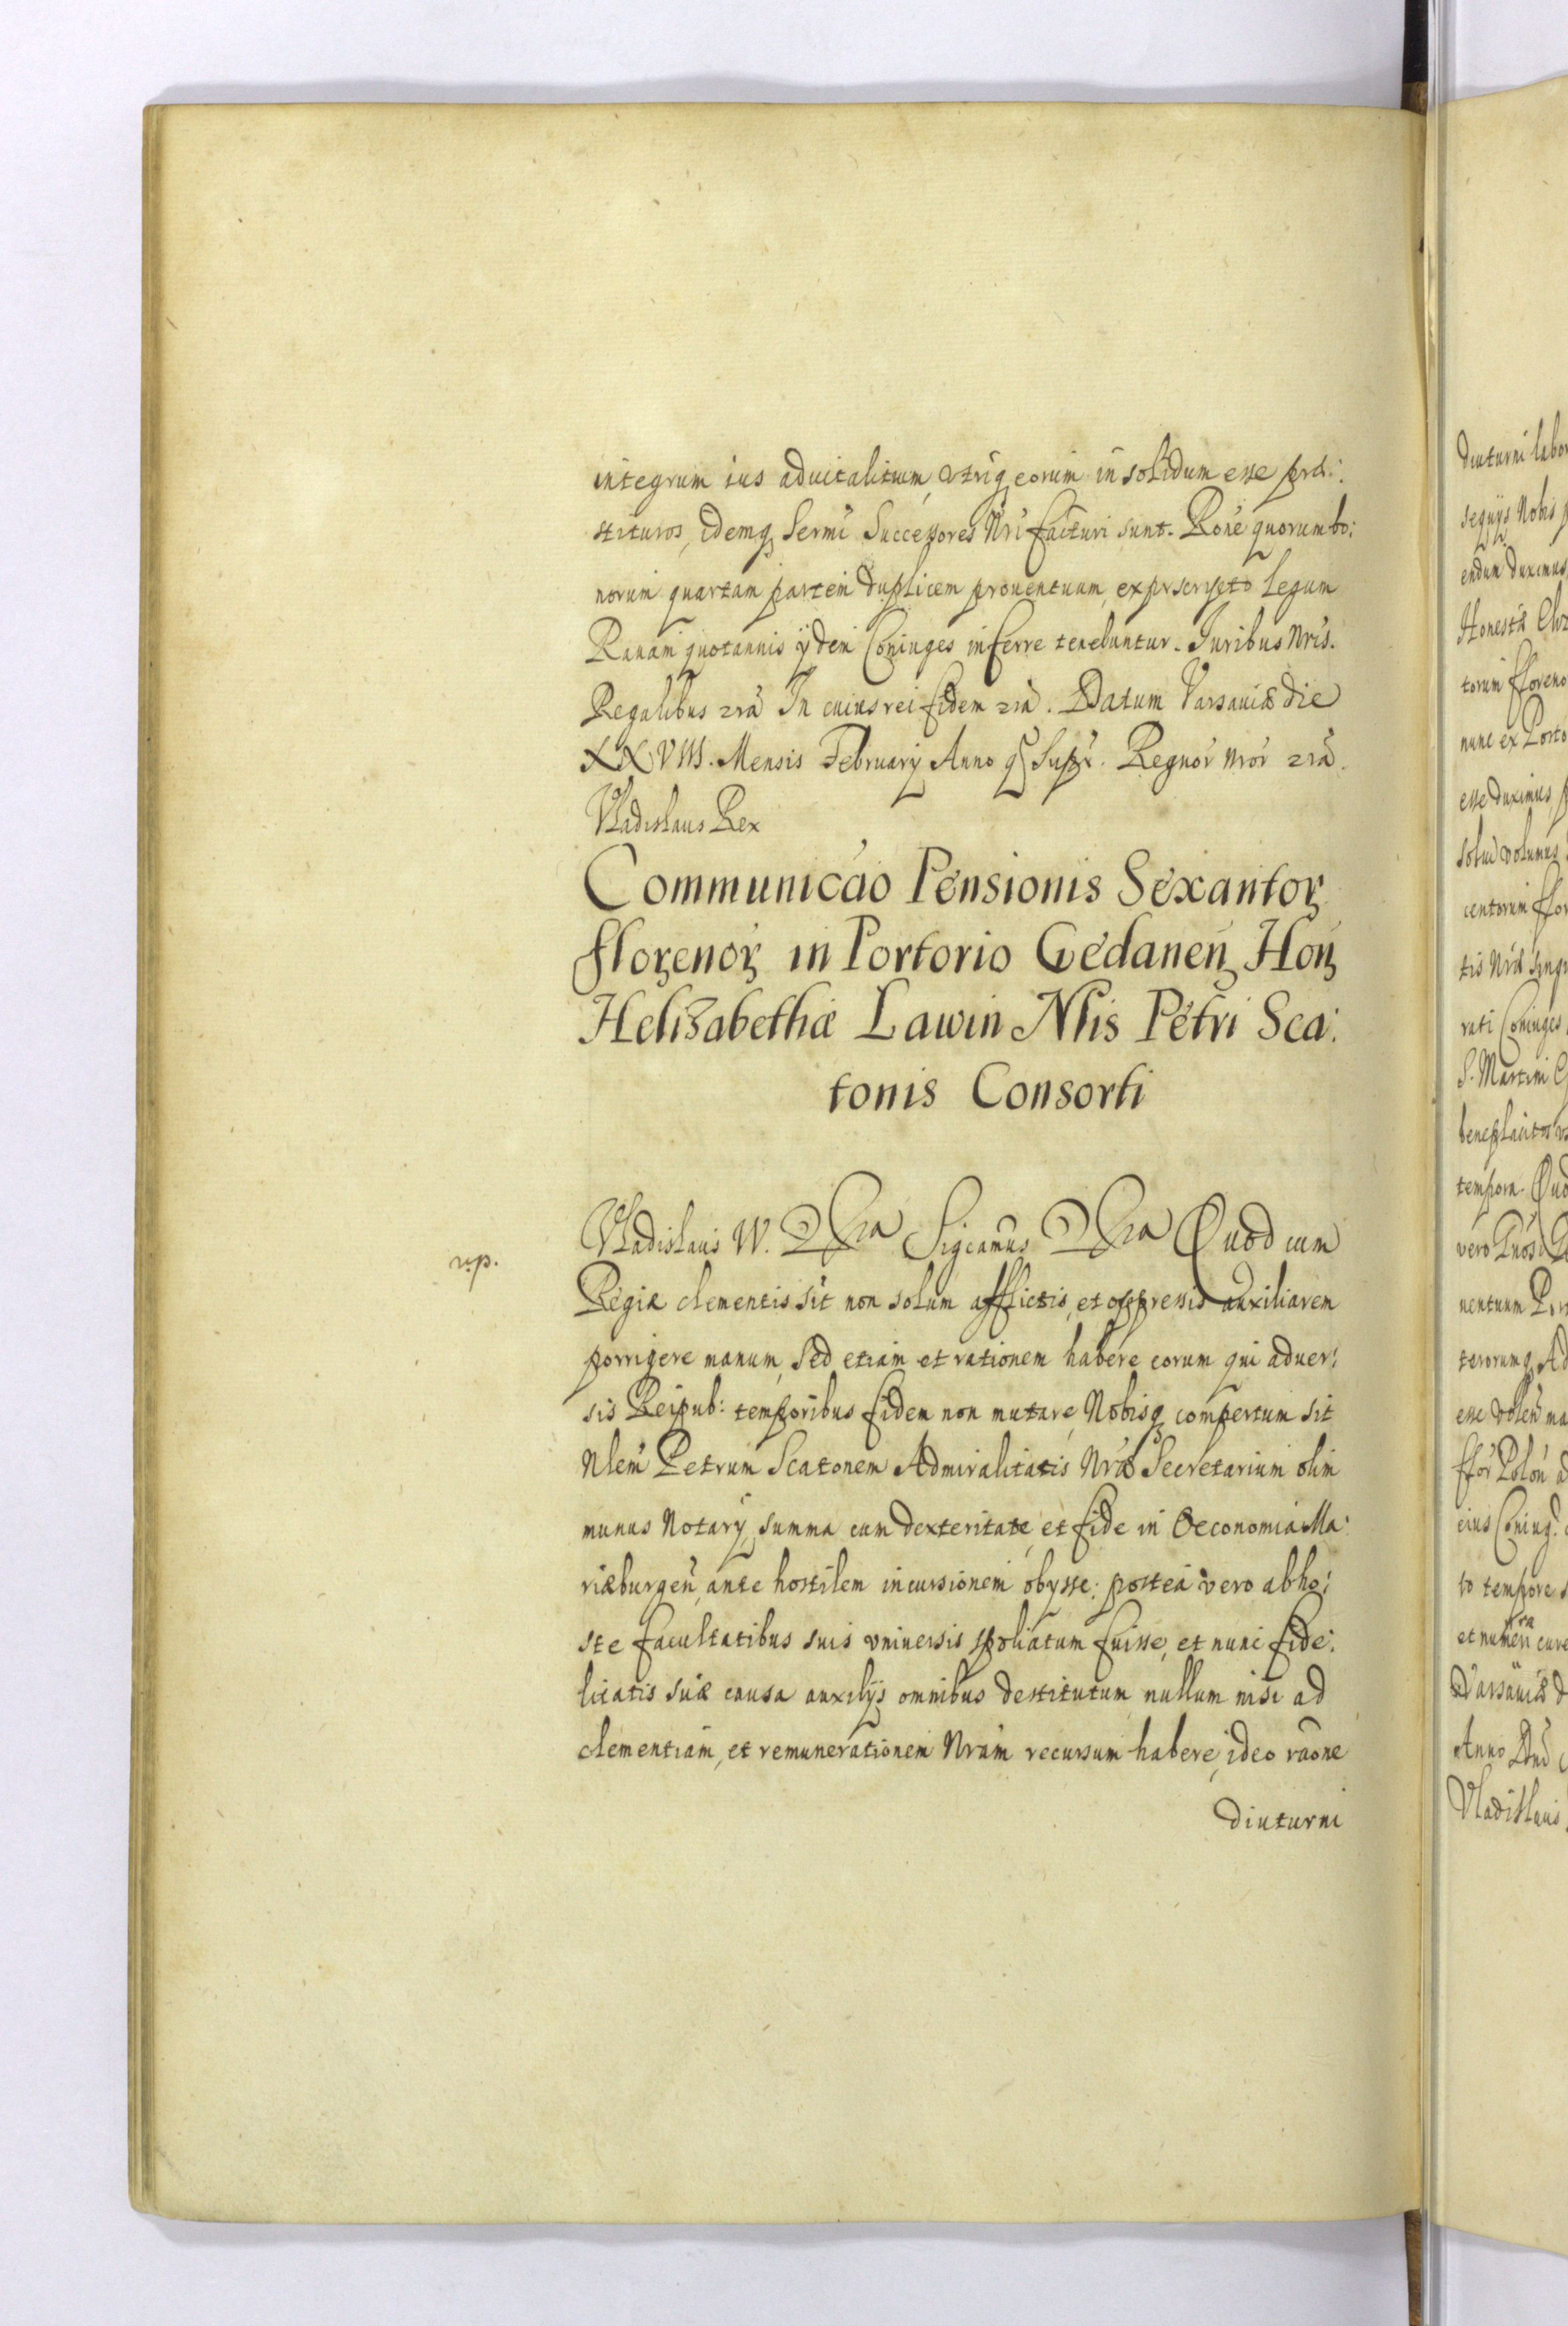 integrum ius aduitalitium, vtriq eorum in solidum esse præ:
stituros, idemq Sermi Successores Nri facturi sunt. Rone quorum bo:
norum quartam partem duplicem prouentuum, ex prscripto Legum
Rauam quotannis ijdem Coniuges inferre tenebuntur. Iuribus Nris.
Regalibus zra In cuius rei fidem zra. Datum Varsauiæ die
XXVIII. Mensis Februarij Anno qs Supr. Regnor Nror zra.
Vladislaus Rex
Communicao Pensionis Sexantor
florenor in Portorio Gedanen Hon
Helizabethæ Lawin Nlis Petri Sca:
tonis Consorti
Vladislaus IV. Dra Sigcamus Dra Quod cum
Regiæ clementis sit non solum afflictis, et oppressis auxiliarem
porrigere manum, sed etiam et rationem habere eorum qui aduer:
sis Reipub: temporibus fidem non mutare, Nobisq compertum sit
Nlem Petrum Scatonem Admiralitatis Nræ Secretarium olim
munus Notarij summa cum dexteritate, et fide in Oeconomia Ma:
riæburgen, ante hostilem incursionem obysse: postea vero ab ho:
ste facultatibus suis vniuersis spoliatum fuisse, et nunc fide:
litatis suæ causa auxilijs omnibus destitutum nullum nisi ad
clementiam, et remunerationem Nram recursum habere, ideo raone
diuturni
diuturni labor
sequijs Nobis
endum duximus
Honestæ
torum ffloreno
nunc ex Porto
esse duximus
volumus
centorum
tis Nræ
rati Coniuges
S. Martini
beneplacitos
tempora. Quod
vero
uentuum
terorumq
esse volen
ffor Polon
eius Coniug.
to tempore
et numeri
Varsauiæ d
Anno Dni
Vladislaus